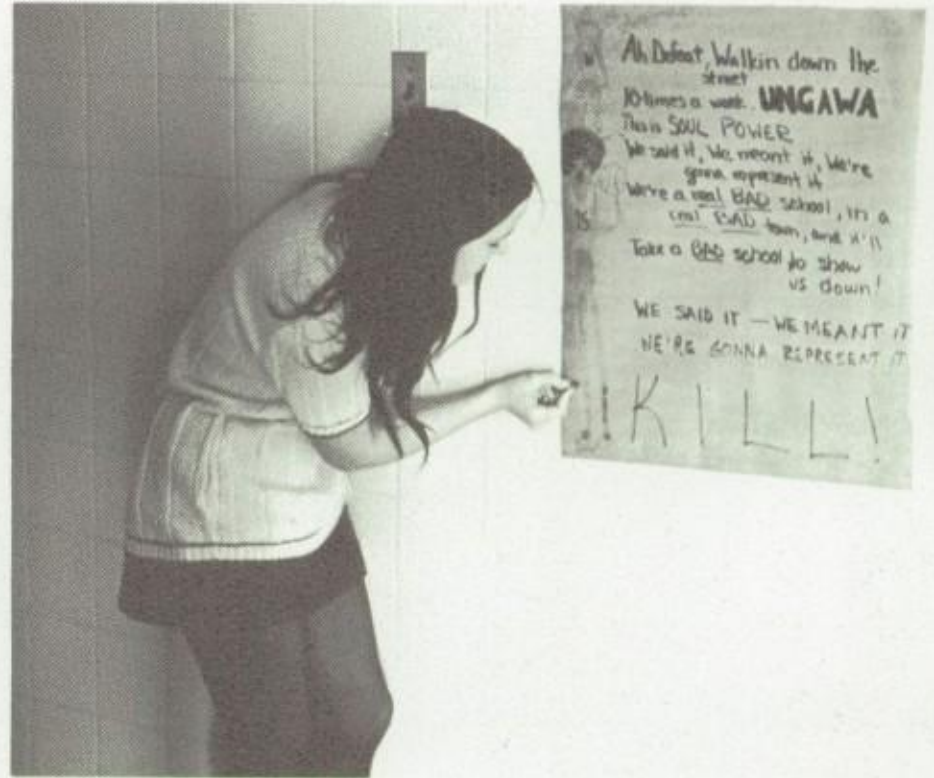 Ah Defeat, Walkin down the
street
10 times a week. UNGAWA
This is SOUL POWER
We said it, We meant it, We're
gonna represent it
We're a real BAD school, in a
real BAD town, and it'll
Take a BAD school to show
us down!
WE SAID IT — WE MEANT IT
WE'RE GONNA REPRESENT IT
KILL!